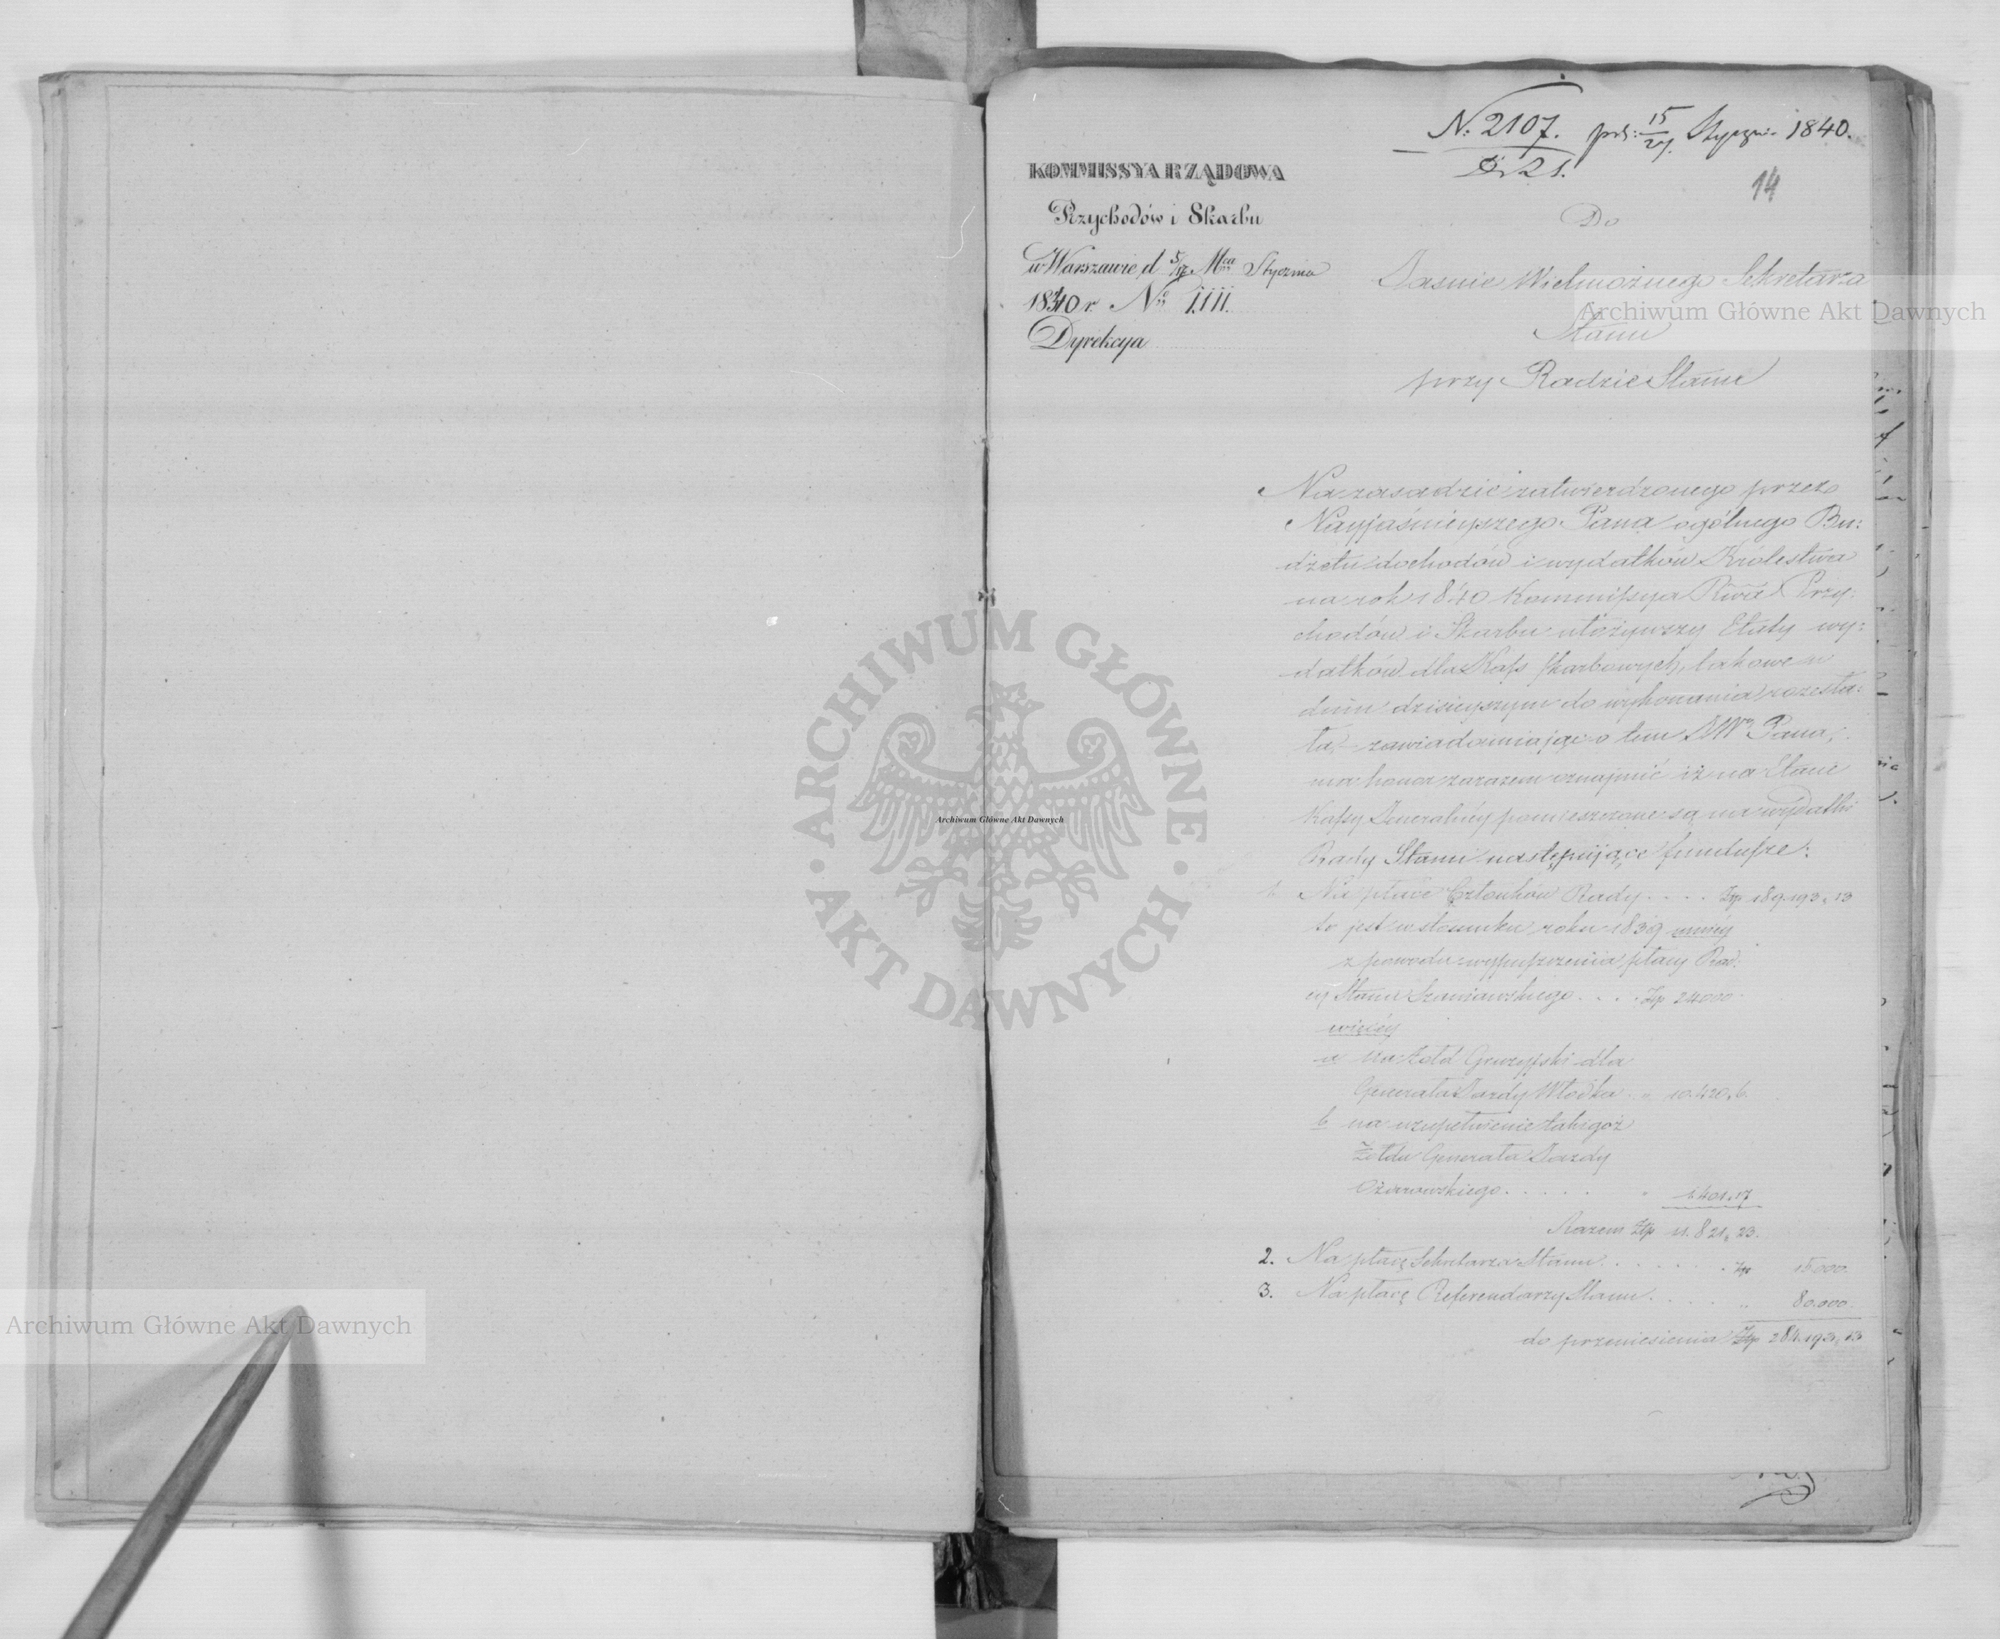 N: 2107. 15/27 Stycznia 1840.
D. 21.
14
KOMMISSYA RZĄDOWA
Przychodów i Skarbu
w Warszawie d. 5/17 Mca Stycznia
1840 r. No 1111.
Dyrekcya
Do
Jaśnie Wielmożnego Sekretarza
Stanu
przy Radzie Stanu
Na zasadzie zatwierdzonego przez
Nayjaśnieyszego Pana ogólnego Bu-
dżetu dochodów i wydatków Królestwa
na rok 1840 Kommissya Rwa Przy-
chodów i Skarbu ułożywszy Etaty wy-
datków dla Kass skarbowych, takowe w
dniu dzisieyszym do wykonania rozesła-
ła, zawiadamiając o tem JWo Pana,
ma honor zarazem oznajmić iż na Etacie
Kassy Jeneralnéy pomieszczone są na wydatki
Rady Stanu następujące fundusze:
1. Na płace Członków Rady . . . . Złp 189.193,,13
to jest w stosunku roku 1839 mniéy
z powodu wypuszczenia płacy Rad-
cy Stanu Szaniawskiego . . . . Złp 24000.
więcéy
a na żołd Gruzyjski dla
Generała Jazdy Włodka . „ 10.420,,6.
b na uzupełnienie takiegoż
Żołdu Generała Jazdy
Ożarowskiego . . . . . „ 1.401,,17
Razem Złp 11.821,,23.
2. Na płacę Sekretarza Stanu . . . . . . . Złp 15.000.
3. Na płacę Referendarzy Stanu . . . . „ 80.000.
do przeniesienia Złp 284.193,,13
Archiwum Główne Akt Dawnych
ARCHIWUM GŁÓWNE · AKT DAWNYCH ·
Archiwum Główne Akt Dawnych
Archiwum Główne Akt Dawnych